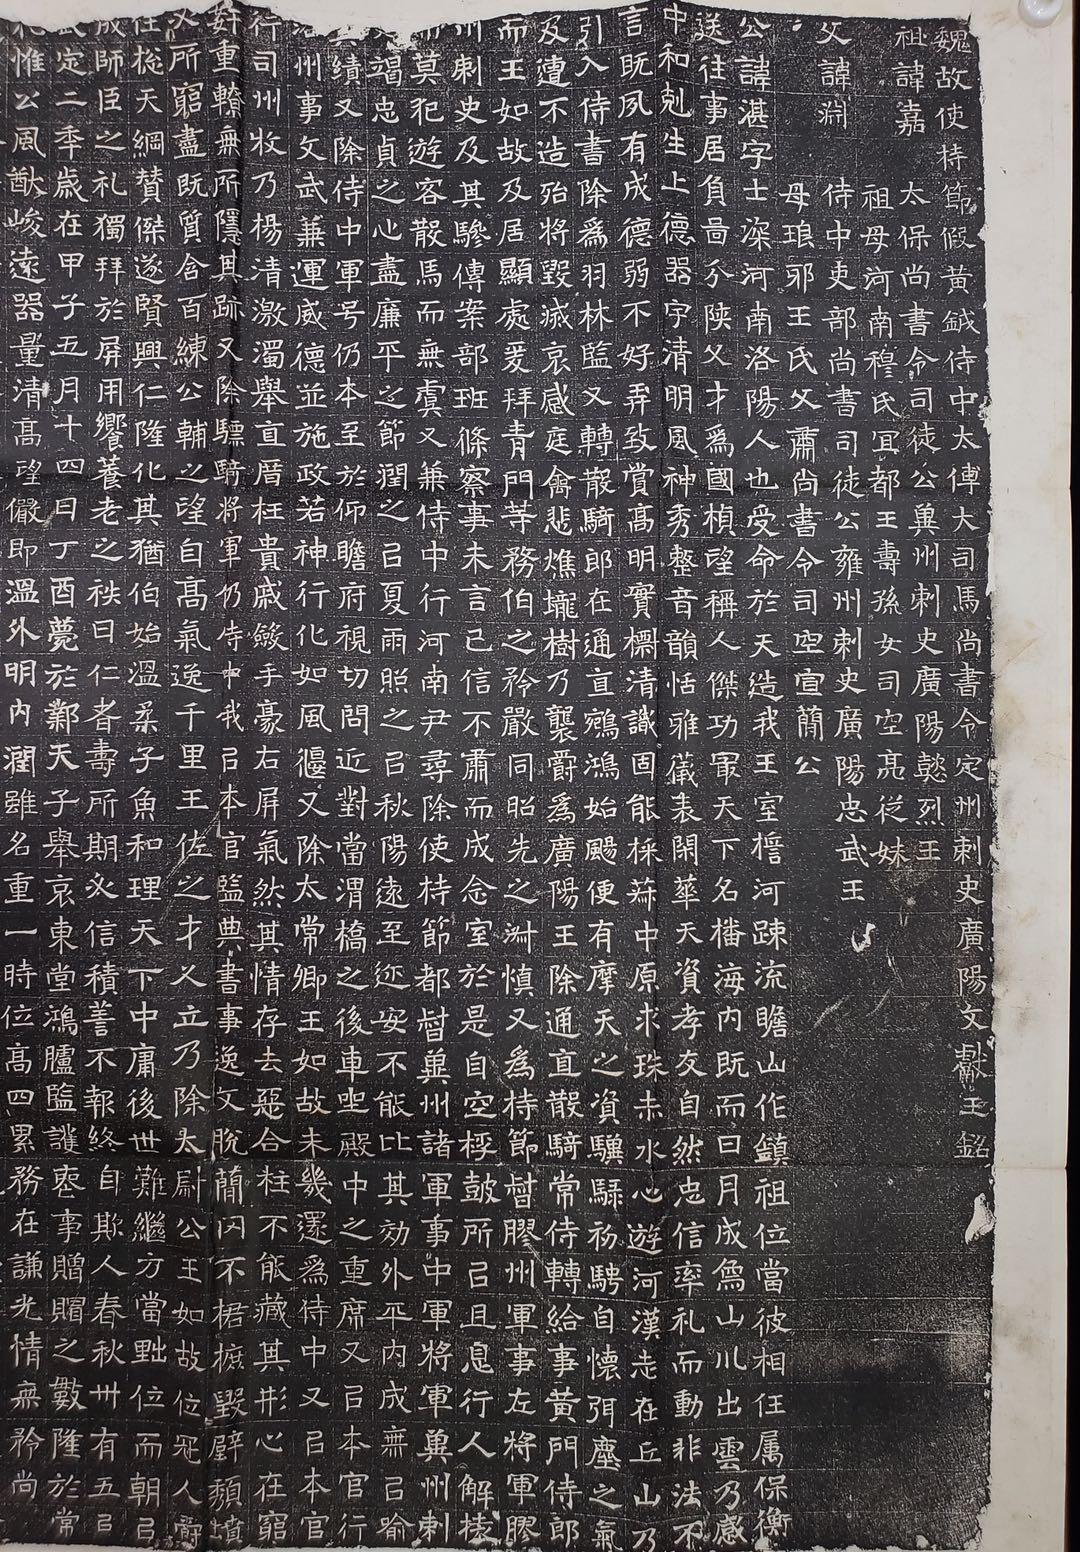 魏故使持節假黃鉞侍中太傅大司馬尚書令定州刺史廣陽文獻王銘
祖諱嘉 太保尚書令司徒公冀州刺史廣陽懿烈王
祖母河南穆氏宜都王壽孫女司空亮從妹
父諱淵 侍中吏部尚書司徒公雍州刺史廣陽忠武王
母琅邪王氏父肅尚書令司空宣簡公
公諱湛字士深河南洛陽人也受命於天造我王室㯙河疎流瞻山作鎮祖位當彼相任属保衡
送往事居負啚分陝父才為國楨望稱人傑功冣天下名播海內既而日月成象山川出雲乃感
中和剋生上德器宇清明風神秀整音韻恬雅儀表閑華天資孝友自然忠信率礼而動非法不
言既夙有成德弱不好弄致賞高明實標清識固能採蒜中原求珠赤水心遊河漢志在丘山乃
引入侍書除為羽林監又轉散騎郎在通直鵷鴻始颺便有摩天之資驥騄初騁自懷弭塵之氣
及遭不造殆將毀滅哀感庭禽悲燋壠樹乃襲爵為廣陽王除通直散騎常侍轉給事黃門侍郎
而王如故及居顯處爰拜青門等務伯之矜嚴同昭先之淵慎又為持節督膠州軍事左將軍膠
州刺史及其驂傳案部班條察事未言已信不肅而成念室於是自空桴鼓所㠯且息行人解椟
而莫犯遊客散馬而無虞又兼侍中行河南尹尋除使持節都督冀州諸軍事中軍將軍冀州刺
竭忠貞之心盡廉平之節潤之㠯夏雨照之㠯秋陽遠至迩安不能比其効外平內成無㠯喻
績又除侍中軍号仍本至於仰瞻府視切問近對當渭橋之後車坐殿中之重席又㠯本官行
州事文武兼運威德並施政若神行化如風偃又除太常卿王如故未幾還為侍中又㠯本官
行司州牧乃楊清激濁舉直厝枉貴戚斂手豪右屏氣然其情存去惡合柱不能藏其形心在窮
姧重轑無所隱其跡又除驃騎將軍仍侍中我㠯本官監典書事逸文脫簡囚不桾摭毀壁頹墳
必所窮盡既質含百練公輔之望自高氣逸千里王佐之才久立乃除太尉公王如故位冠人爵
任㧾天綱贊傑遂賢興仁隆化其猶伯始溫柔子魚和理天下中庸後世難繼方當黜位而朝㠯
成師臣之礼獨拜於屏用饗養老之秩曰仁者壽所期必信積善不報終自欺人春秋卅有五㠯
武定二年歲在甲子五月十四日丁酉薨於鄴天子舉哀東堂鴻臚監護喪事贈賵之數隆於常
礼惟公風猷峻遠器量清高望儼即溫外明內潤雖名重一時位高四累務在謙光情無矜尚